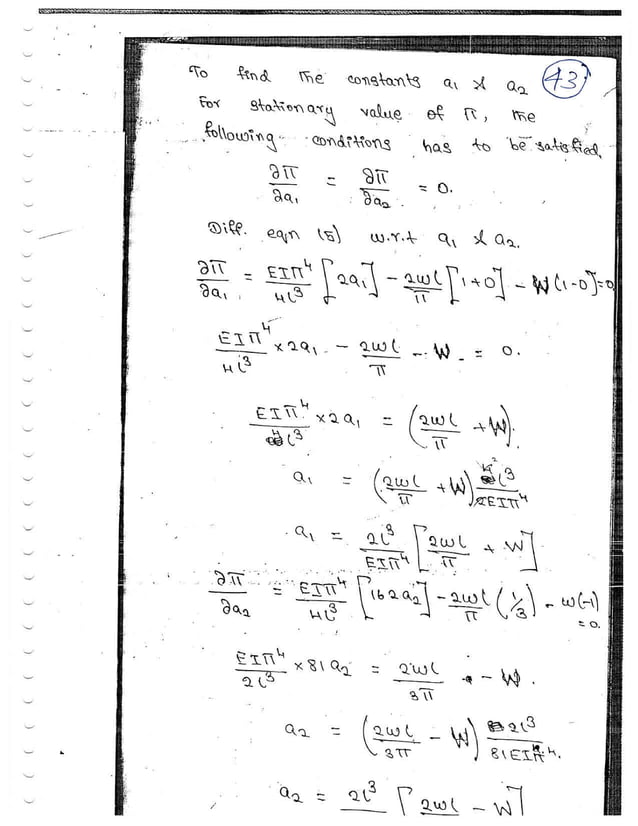 To find the constants a₁ & a₂ (43)
For stationary value of π, the
following conditions has to be satisfied.
∂π/∂a₁ = ∂π/∂a₂ = 0.
Diff. eqn (5) w.r.t a₁ & a₂.
∂π/∂a₁ = EIπ⁴/4l³ [2a₁] - 2ωl/π [1+0] - W(1-0) = 0
EIπ⁴/4l³ × 2a₁ - 2ωl/π - W = 0.
EIπ⁴/4l³ × 2a₁ = (2ωl/π + W).
a₁ = (2ωl/π + W) 4l³/2EIπ⁴
a₁ = 2l³/EIπ⁴ [2ωl/π + W]
∂π/∂a₂ = EIπ⁴/4l³ [162a₂] - 2ωl/π (1/3) - W(-1) = 0.
EIπ⁴/2l³ × 81a₂ = 2ωl/3π - W.
a₂ = (2ωl/3π - W) 2l³/81EIπ⁴.
a₂ = 2l³ [2ωl - W]